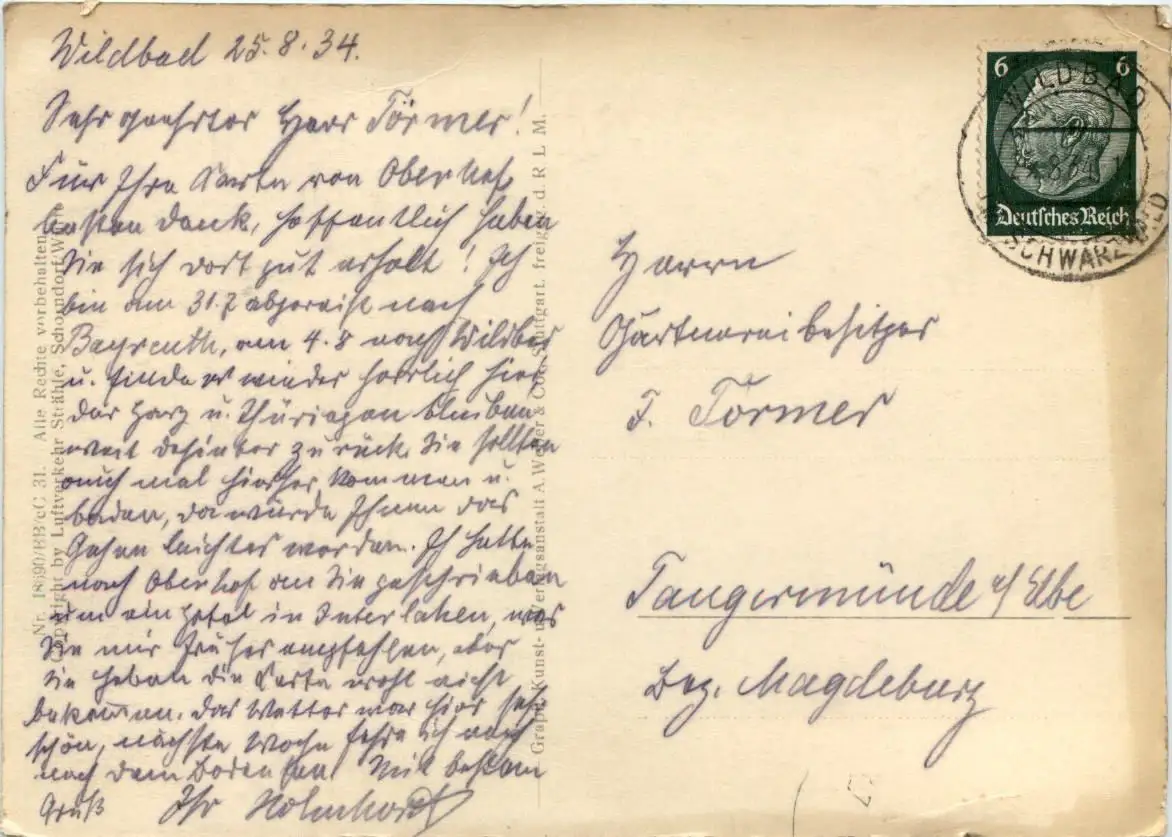 Wildbad 25.8.34.
Sehr geehrter Herr Törmer!
Für Ihre Karte von Oberhof
besten Dank, hoffentlich haben
Sie sich dort gut erholt! Ich
bin am 31.7 abgereist nach
Bayreuth, am 4.8 nach Wildbad
u. finde es wieder herrlich hier
der Harz u. Thüringen bleiben
weit dahinter zurück. Sie sollten
auch mal hierher kommen u.
baden, da würde Ihnen das
Gehen leichter werden. Ich hatte
nach Oberhof an Sie geschrieben
um ein Hotel in Interlaken, was
Sie mir früher empfahlen, aber
Sie haben die Karte wohl nicht
bekommen. Das Wetter war hier sehr
schön, nächste Woche fahre ich noch
nach dem Bodensee. Mit bestem
Gruß Ihr
Nr. 18690/BB/cC 31. Alle Rechte vorbehalten
Copyright by Luftverkehr Strähle, Schorndorf/Wttbg
Graph. Kunst- u. Verlagsanstalt A. Weber & Co., Stuttgart. freigeg. d. R L M.
6 6
Deutsches Reich
WILDBAD
SCHWARZWALD
Herrn
Gärtnereibesitzer
F. Törmer
Tangermünde a/Elbe
Bez. Magdeburg